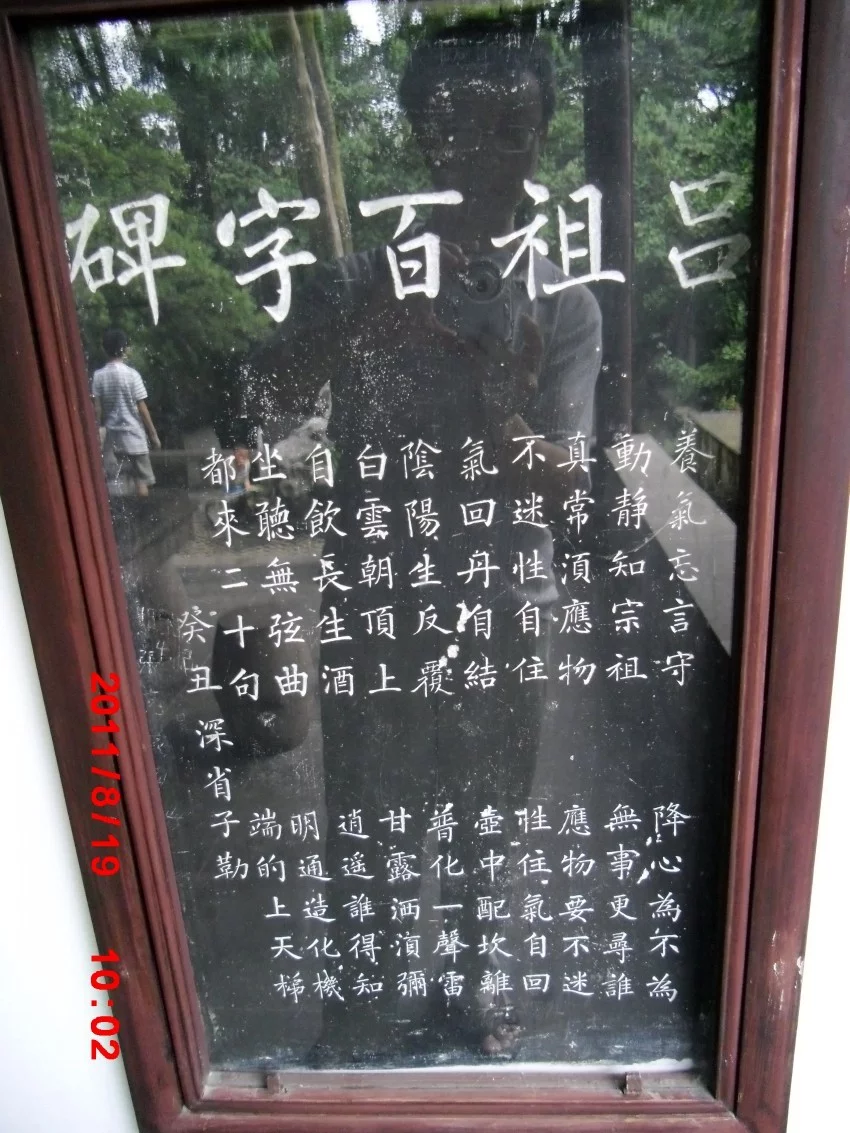 吕祖百字碑
養氣忘言守　降心為不為
動靜知宗祖　無事更尋誰
真常湏應物　應物要不迷
不迷性自住　性住氣自回
氣回丹自結　壺中配坎離
陰陽生反覆　普化一聲雷
白雲朝頂上　甘露洒湏彌
自飲長生酒　逍遥誰得知
坐聽無弦曲　明通造化機
都來二十句　端的上天梯
癸丑深省子勒
2011/8/19 10:02